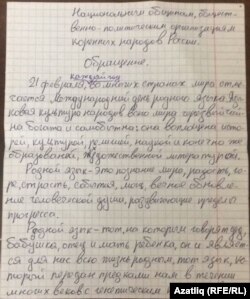 Национальным общинам, общест-
венно-политическим организациям
коренных народов России.
Обращение.
каждый год
21 февраля, во многих странах мира отме-
чается Международный день родного языка. Язы-
ковая культура народов всего мира чрезвычай-
но богата и самобытна; она воплощена исто-
рией, культурой, религией, наукой и конечно же
образованием, художественной литературой.
Родной язык - это познание мира, радость, го-
ре, страсть, события, мощь, вечное обновле-
ние человеческой души, раздвигающие пределы
прогресса.
Родной язык - тот, на котором говорят дед,
бабушка, отец и мать ребёнка, он и являет-
ся для нас всю жизнь родным, тот язык, ко-
торый передан предками нам в течении
многих веков с генетическим